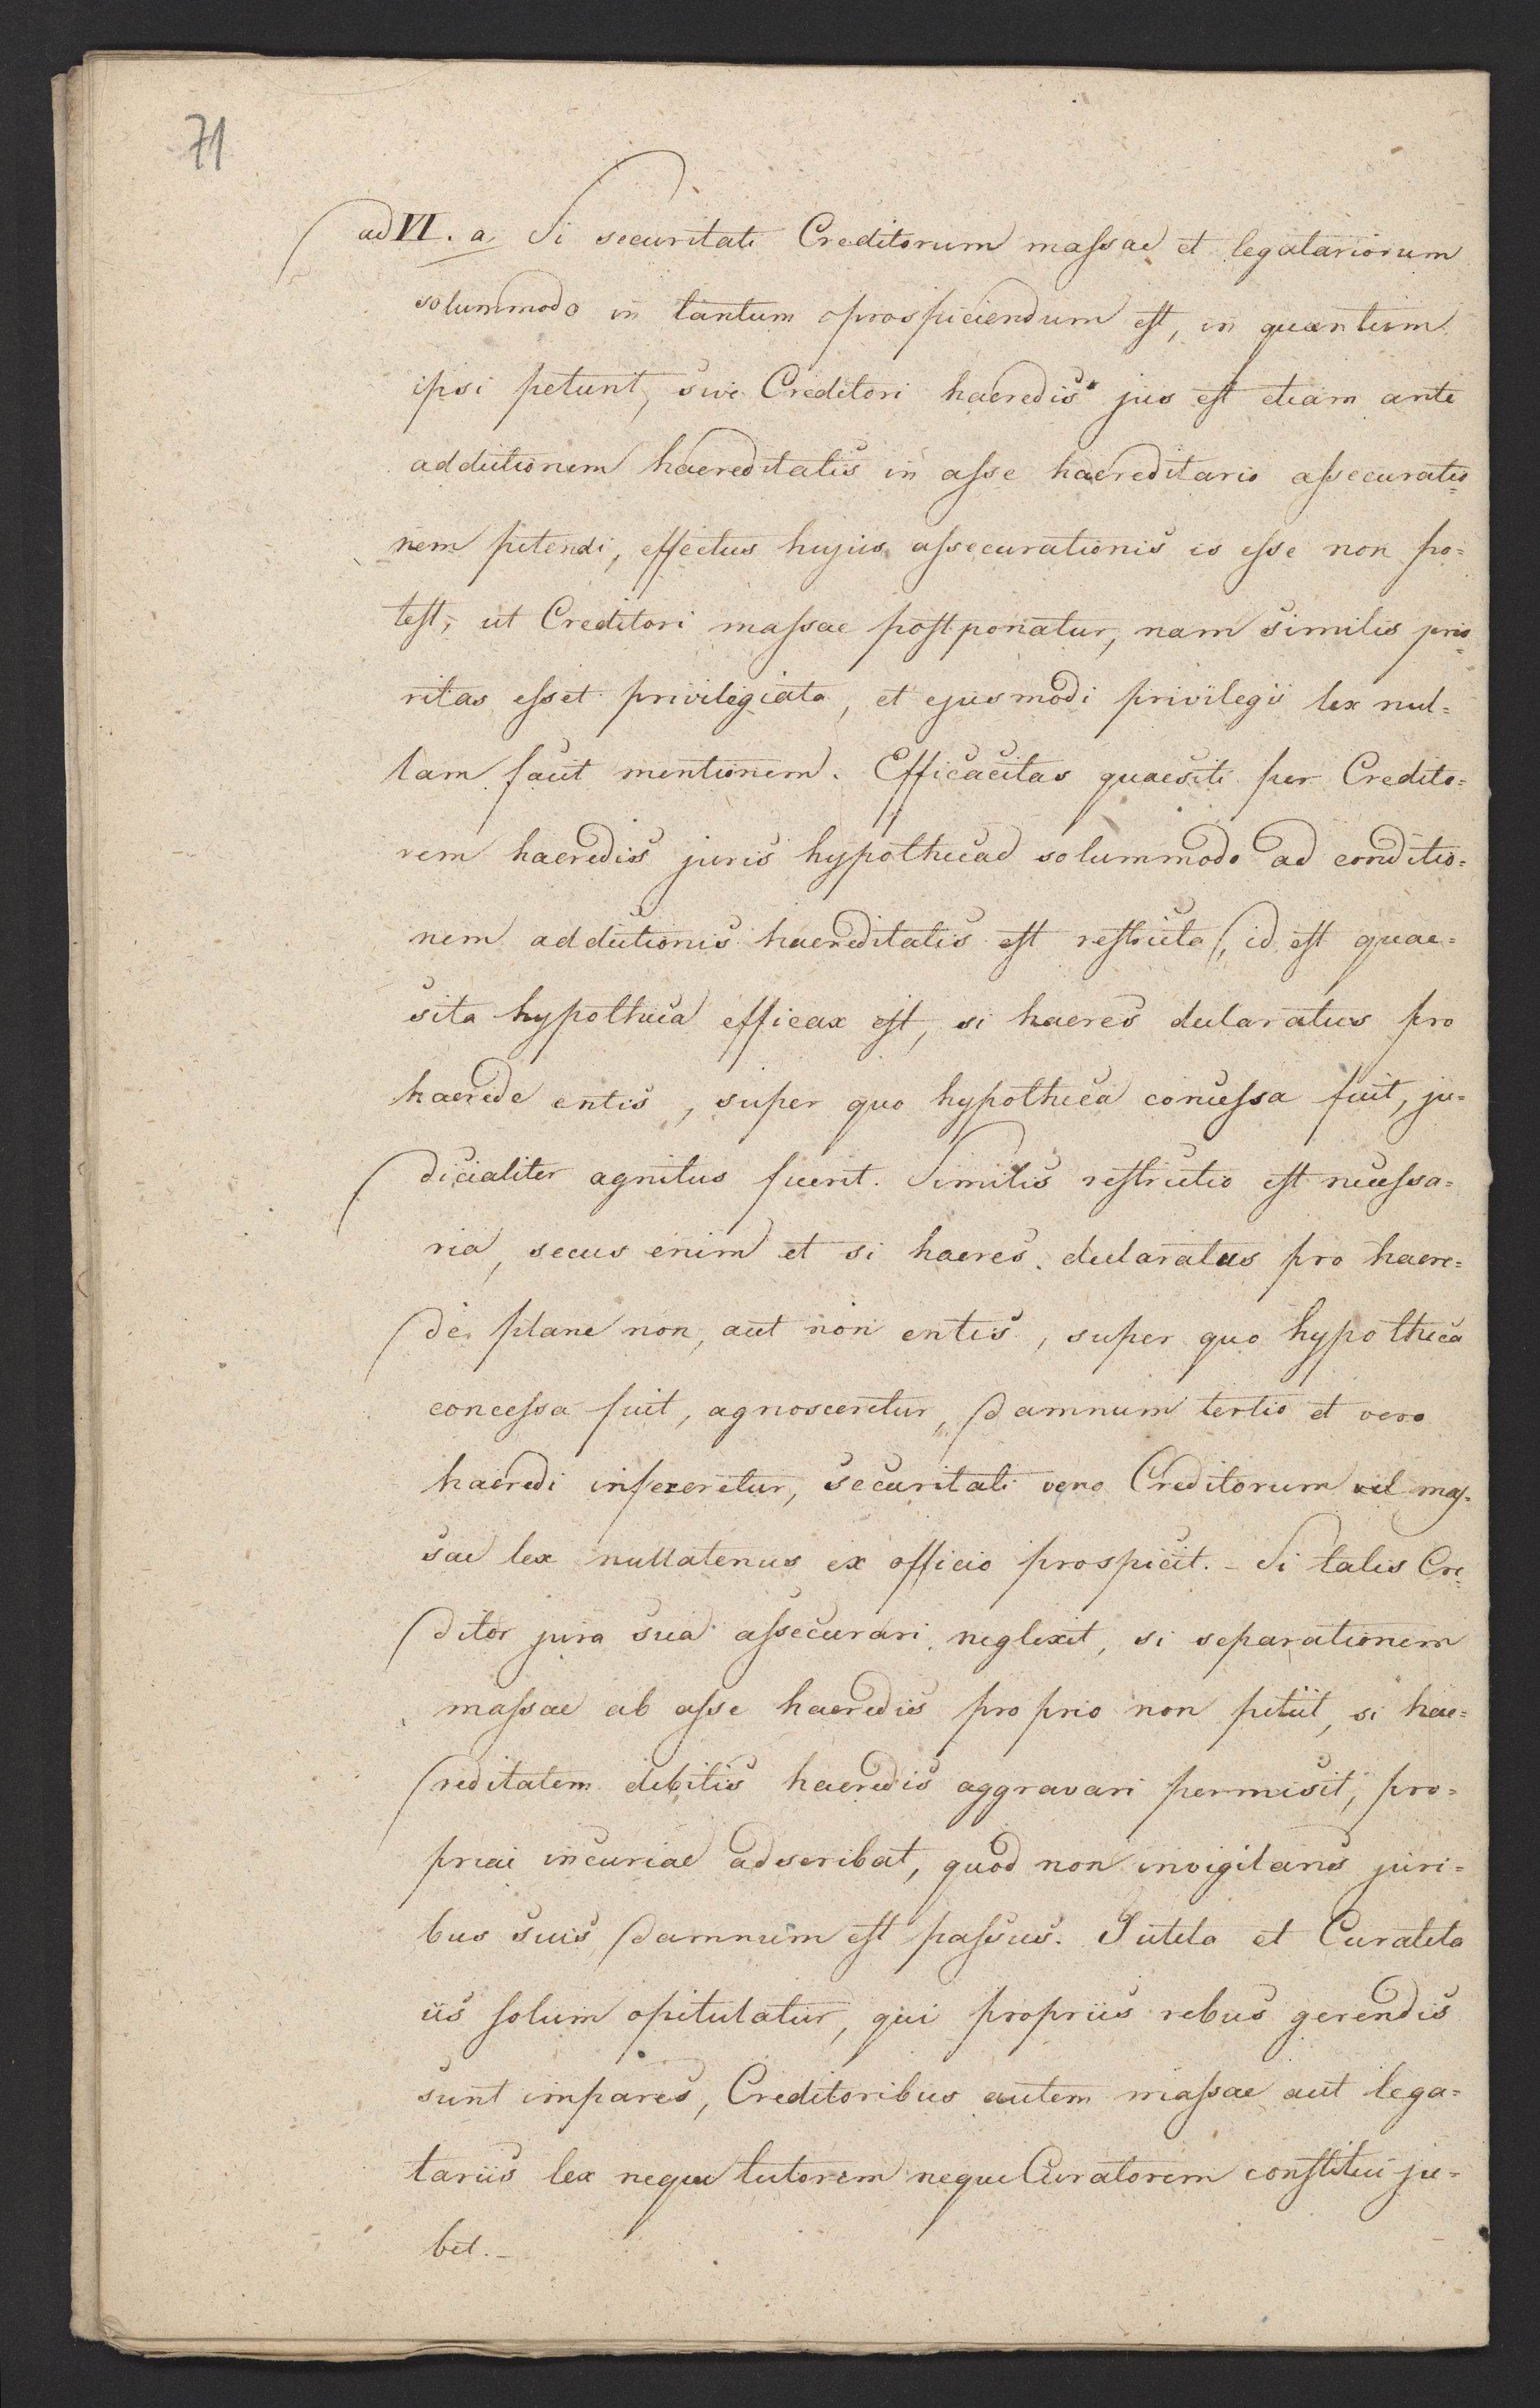 71
ad VI. a, Si securitati Creditorum massae et legatariorum
solummodo in tantum prospiciendum est, in quantum
ipsi petunt, sive Creditori haeredis jus est etiam ante
addictionem haereditatis in asse haereditario assecuratio=
nem petendi, effectus hujus assecurationis is esse non po=
test, ut Creditori massae postponatur, nam similis prio=
ritas esset privilegiata, et ejusmodi privilegii lex nul=
lam facit mentionem. Efficacitas quaesiti per Credito=
rem haeredis juris hypothecae solummodo ad conditio=
nem addictionis haereditatis est restricta, id est quae=
sita hypotheca efficax est, si haeres declaratus pro
haerede entis, super quo hypotheca concessa fuit, ju=
dicialiter agnitus fuerit. Similis restrictio est necessa=
ria, secus enim et si haeres declaratus pro haere=
de plane non, aut non entis, super quo hypotheca
concessa fuit, agnosceretur, damnum tertio et vero
haeredi infereretur, securitati vero Creditorum vel mas=
sae lex nullatenus ex officio prospicit. – Si talis Cre=
ditor jura sua assecurari neglexit, si separationem
massae ab asse haeredis proprio non petiit, si hae=
reditatem debitis haeredis aggravari permisit, pro=
priae incuriae adscribat, quod non invigilans juri=
bus suis damnum est passus. Tutela et Curatela
iis solum opitulatur, qui propriis rebus gerendis
sunt impares, Creditoribus autem massae aut lega=
tariis lex neque tutorem neque Curatorem constitui ju=
bet. –